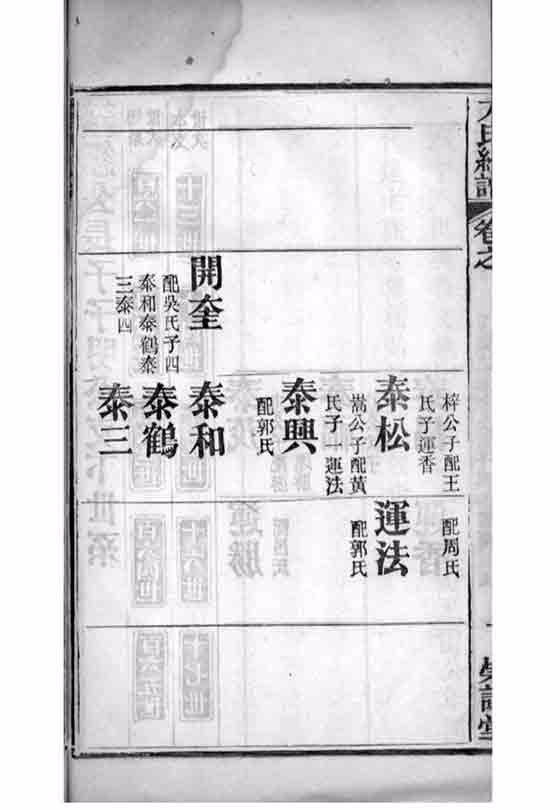 氏統譜
卷之
梓公子配王
氏子運香
配周氏
泰松
嵩公子配黃
氏子一運法
運法
配郭氏
泰興
配郭氏
開奎
配吳氏子四
泰和泰鶴泰
三泰四
泰和
泰鶴
泰三